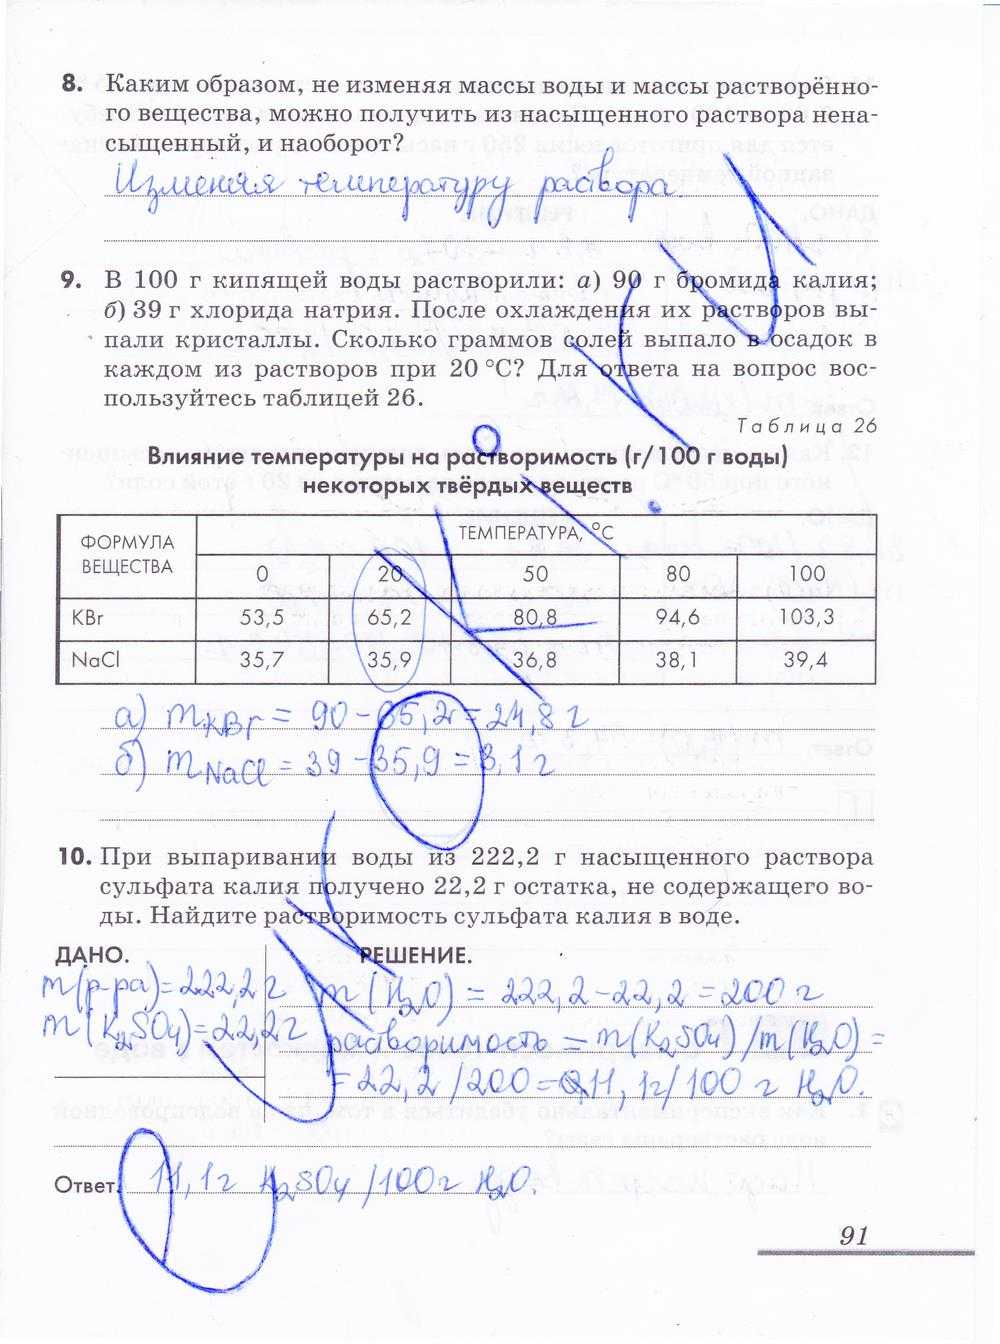 8. Каким образом, не изменяя массы воды и массы растворённо-
го вещества, можно получить из насыщенного раствора нена-
сыщенный, и наоборот?
Изменяя температуру раствора.
9. В 100 г кипящей воды растворили: а) 90 г бромида калия;
б) 39 г хлорида натрия. После охлаждения их растворов вы-
пали кристаллы. Сколько граммов солей выпало в осадок в
каждом из растворов при 20 °С? Для ответа на вопрос вос-
пользуйтесь таблицей 26.
Таблица 26
Влияние температуры на растворимость (г/100 г воды)
некоторых твёрдых веществ
ФОРМУЛА ВЕЩЕСТВА ТЕМПЕРАТУРА, °С
0 20 50 80 100
KBr 53,5 65,2 80,8 94,6 103,3
NaCl 35,7 35,9 36,8 38,1 39,4
а) m KBr = 90 - 65,2г = 24,8 г
б) m NaCl = 39 - 35,9 = 3,1 г
10. При выпаривании воды из 222,2 г насыщенного раствора
сульфата калия получено 22,2 г остатка, не содержащего во-
ды. Найдите растворимость сульфата калия в воде.
ДАНО. РЕШЕНИЕ.
m(р-ра)=222,2 г m(H2O) = 222,2-22,2 = 200 г
m(K2SO4)=22,2 г растворимость = m(K2SO4)/m(H2O) =
= 22,2/200 = 11,1г/100 г H2O.
Ответ. 11,1 г K2SO4/100 г H2O.
91